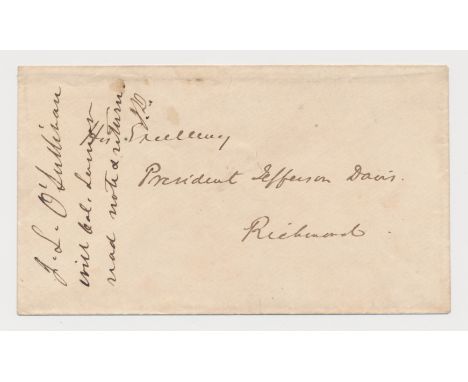 J. L. O'Sullivan
will Col. Lamar
read note & return
J.D.
His Excellency
President Jefferson Davis.
Richmond